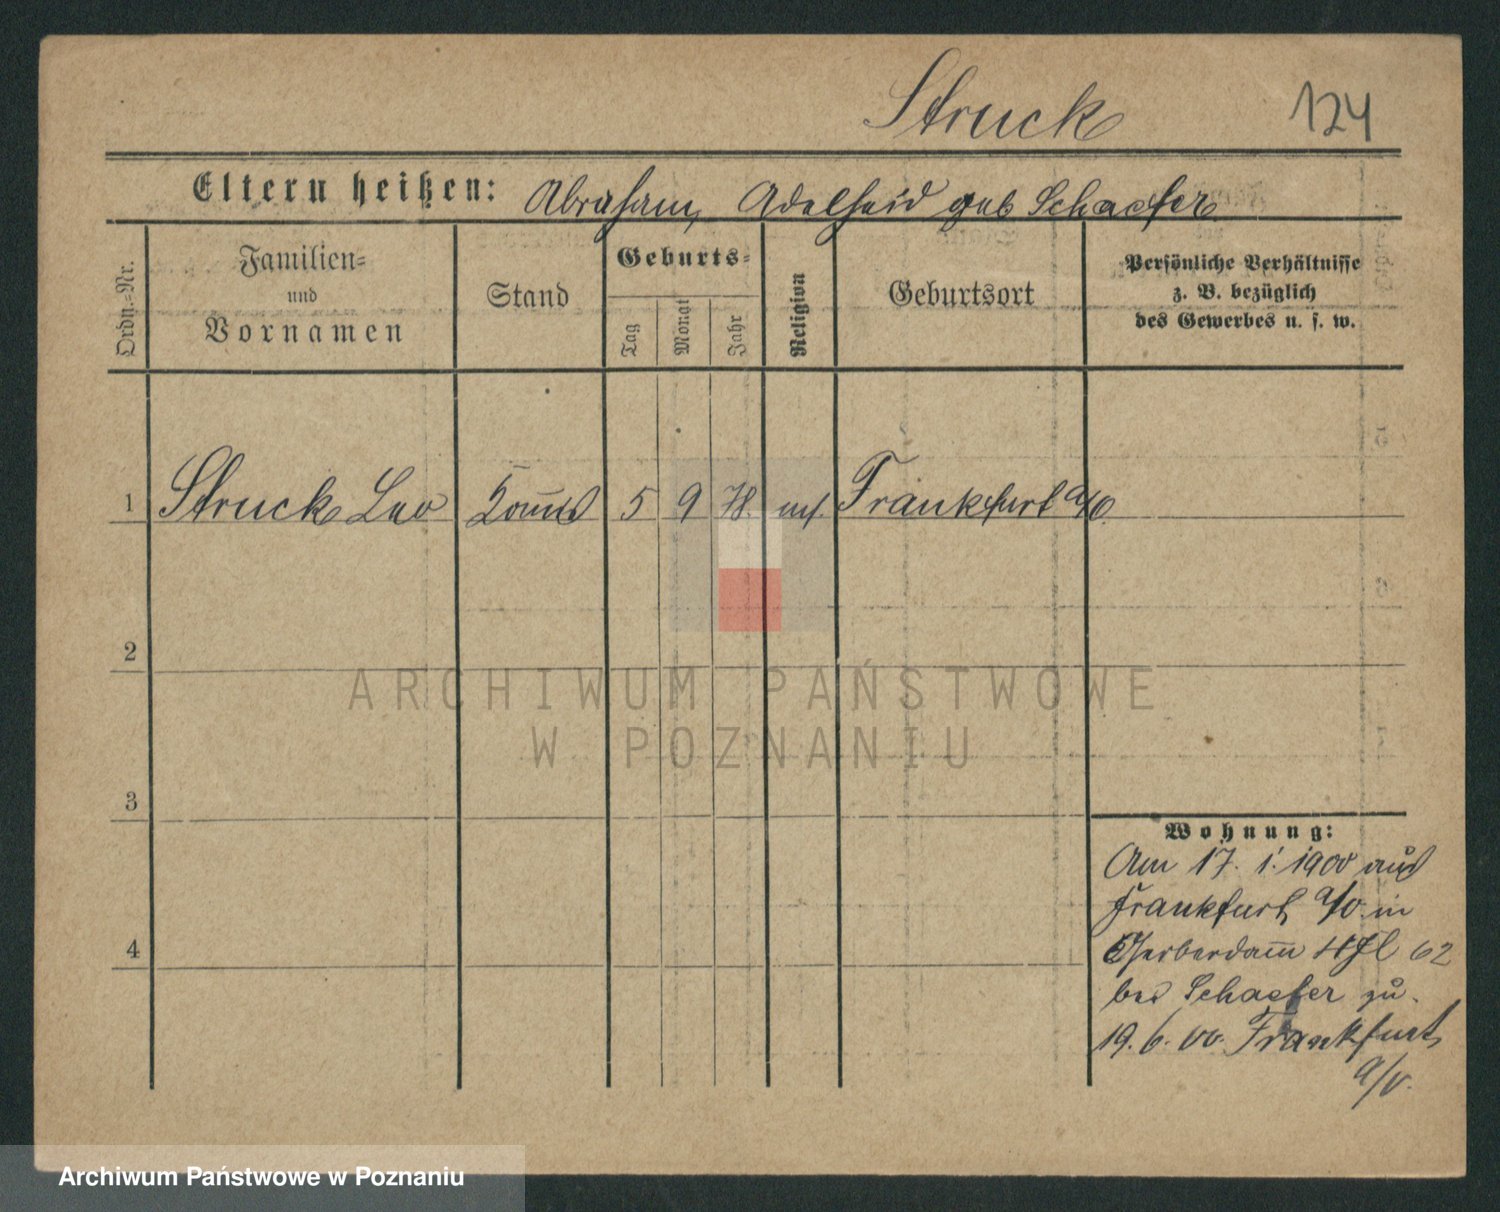 Struck 124
Eltern heißen: Abraham, Adelheid geb Schaefer
Ordn.-Nr.
Familien-
und
Vornamen
Stand
Geburts-
Tag
Monat
Jahr
Religion
Geburtsort
Persönliche Verhältnisse
z. B. bezüglich
des Gewerbes u. s. w.
1 Struck Leo 5 9 78. mos. Frankfurt a/O.
2
3
4
Wohnung:
Am 17. 1. 1900 aus
Frankfurt a/O. in
Gerberdam̅ 62
bei Schaefer zu.
19. 6. 00. Frankfurt
a/O.
ARCHIWUM PAŃSTWOWE
W POZNANIU
Archiwum Państwowe w Poznaniu